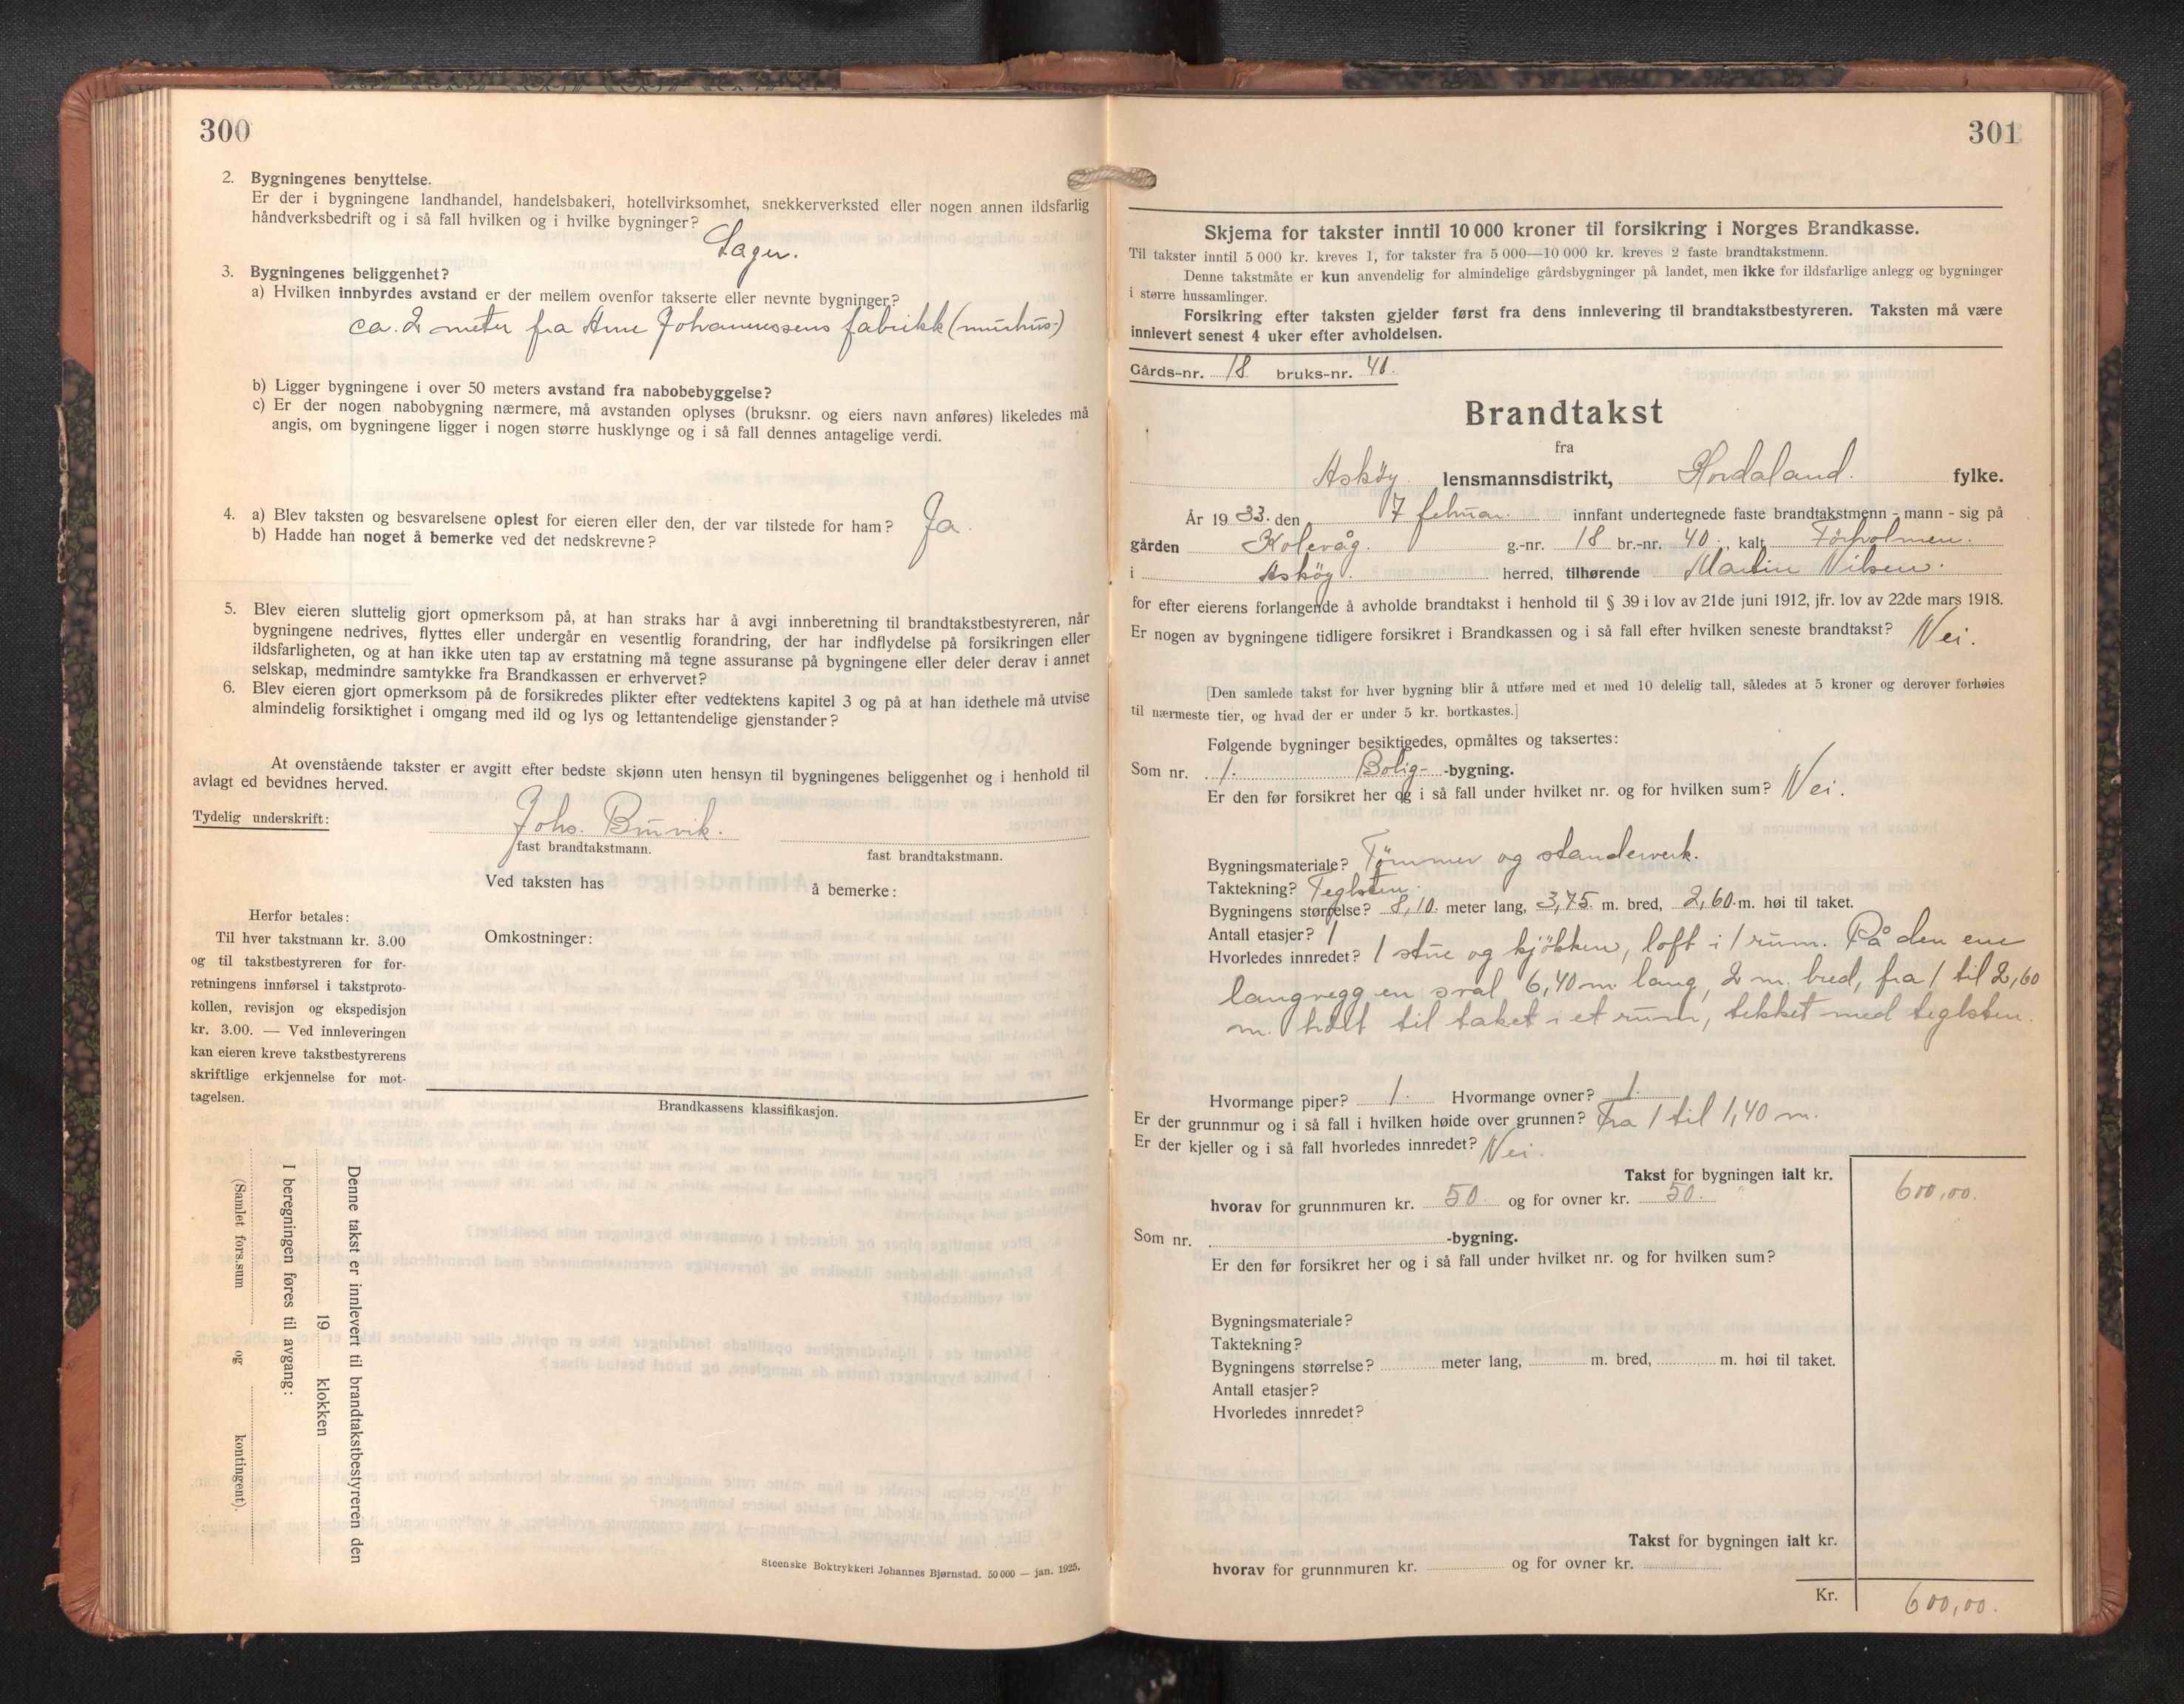 300
2. Bygningenes benyttelse.
Er der i bygningene landhandel, handelsbakeri, hotellvirksomhet, snekkerverksted eller nogen annen ildsfarlig
håndverksbedrift og i så fall hvilken og i hvilke bygninger?
Lager.
3. Bygningenes beliggenhet?
a) Hvilken innbyrdes avstand er der mellem ovenfor takserte eller nevnte bygninger?
ca. 2 meter fra Arne Johannessens fabrikk (murhus)
b) Ligger bygningene i over 50 meters avstand fra nabobebyggelse?
c) Er der nogen nabobygning nærmere, må avstanden oplyses (bruksnr. og eiers navn anføres) likeledes må
angis, om bygningene ligger i nogen større husklynge og i så fall dennes antagelige verdi.
4. a) Blev taksten og besvarelsene oplest for eieren eller den, der var tilstede for ham? Ja.
b) Hadde han noget å bemerke ved det nedskrevne?
5. Blev eieren sluttelig gjort opmerksom på, at han straks har å avgi innberetning til brandtakstbestyreren, når
bygningene nedrives, flyttes eller undergår en vesentlig forandring, der har indflydelse på forsikringen eller
ildsfarligheten, og at han ikke uten tap av erstatning må tegne assuranse på bygningene eller deler derav i annet
selskap, medmindre samtykke fra Brandkassen er erhvervet?
6. Blev eieren gjort opmerksom på de forsikredes plikter efter vedtektens kapitel 3 og på at han idethele må utvise
almindelig forsiktighet i omgang med ild og lys og lettantendelige gjenstander?
At ovenstående takster er avgitt efter bedste skjønn uten hensyn til bygningenes beliggenhet og i henhold til
avlagt ed bevidnes herved.
Tydelig underskrift: Johs.
fast brandtakstmann. fast brandtakstmann.
Ved taksten has å bemerke:
Herfor betales:
Til hver takstmann kr. 3.00
og til takstbestyreren for for-
retningens innførsel i takstproto-
kollen, revisjon og ekspedisjon
kr. 3.00. — Ved innleveringen
kan eieren kreve takstbestyrerens
skriftlige erkjennelse for mot-
tagelsen.
Omkostninger:
Brandkassens klassifikasjon.
Denne takst er innlevert til brandtakstbestyreren den
19 klokken
I beregningen føres til avgang:
(Samlet fors.sum og kontingent).
Steenske Boktrykkeri Johannes Bjørnstad. 50 000 — jan. 1925.
301
Skjema for takster inntil 10 000 kroner til forsikring i Norges Brandkasse.
Til takster inntil 5 000 kr. kreves 1, for takster fra 5 000—10 000 kr. kreves 2 faste brandtakstmenn.
Denne takstmåte er kun anvendelig for almindelige gårdsbygninger på landet, men ikke for ildsfarlige anlegg og bygninger
i større hussamlinger.
Forsikring efter taksten gjelder først fra dens innlevering til brandtakstbestyreren. Taksten må være
innlevert senest 4 uker efter avholdelsen.
Gårds-nr. 18 bruks-nr. 40.
Brandtakst
fra
Askøy lensmannsdistrikt, Hordaland. fylke.
År 1933. den 7 februar. innfant undertegnede faste brandtakstmenn - mann - sig på
gården Kolevåg. g.-nr. 18 br.-nr. 40., kalt
i Askøy. herred, tilhørende Martin Nilsen.
for efter eierens forlangende å avholde brandtakst i henhold til § 39 i lov av 21de juni 1912, jfr. lov av 22de mars 1918.
Er nogen av bygningene tidligere forsikret i Brandkassen og i så fall efter hvilken seneste brandtakst? Nei.
[Den samlede takst for hver bygning blir å utføre med et med 10 delelig tall, således at 5 kroner og derover forhøies
til nærmeste tier, og hvad der er under 5 kr. bortkastes.]
Følgende bygninger besiktigedes, opmåltes og taksertes:
Som nr. 1. Bolig- -bygning.
Er den før forsikret her og i så fall under hvilket nr. og for hvilken sum? Nei.
Bygningsmateriale? Tømmer og standerverk.
Taktekning? Teglsten.
Bygningens størrelse? 8,10. meter lang, 3,75. m. bred, 2,60. m. høi til taket.
Antall etasjer? 1
Hvorledes innredet? 1 stue og kjøkken, loft i 1 rum. På den ene
langvegg en sval 6,40 m. lang, 2 m. bred, fra 1 til 2,60
m. høit til taket i et rum, tekket med teglsten.
Hvormange piper? 1. Hvormange ovner? 1.
Er der grunnmur og i så fall i hvilken høide over grunnen? Fra 1 til 1,40 m.
Er der kjeller og i så fall hvorledes innredet? Nei.
Takst for bygningen ialt kr. 600,00.
hvorav for grunnmuren kr. 50. og for ovner kr. 50.
Som nr. -bygning.
Er den før forsikret her og i så fall under hvilket nr. og for hvilken sum?
Bygningsmateriale?
Taktekning?
Bygningens størrelse? meter lang, m. bred, m. høi til taket.
Antall etasjer?
Hvorledes innredet?
Takst for bygningen ialt kr.
hvorav for grunnmuren kr. og for ovner kr.
Kr. 600,00.